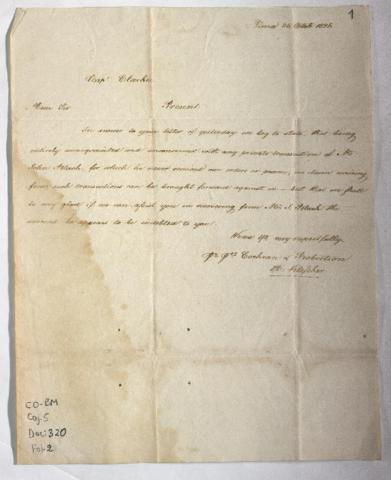 1
Octob
Capt Clarke
Dear Sir Present
In answer to your letter of yesterday we beg to state, that being
entirely unacquainted and unconcerned with any private transaction of Mr
John for which he never received our orders or we claim
from such transactions can be brought forward against us — but that we shall
be very glad if we can assist you in recovering from Mr. J. the
amount he appears to be indebted to you.
very respectfully
Cochran & Robertson
CO-BM
Caj-5
Doc: 320
Fol-2